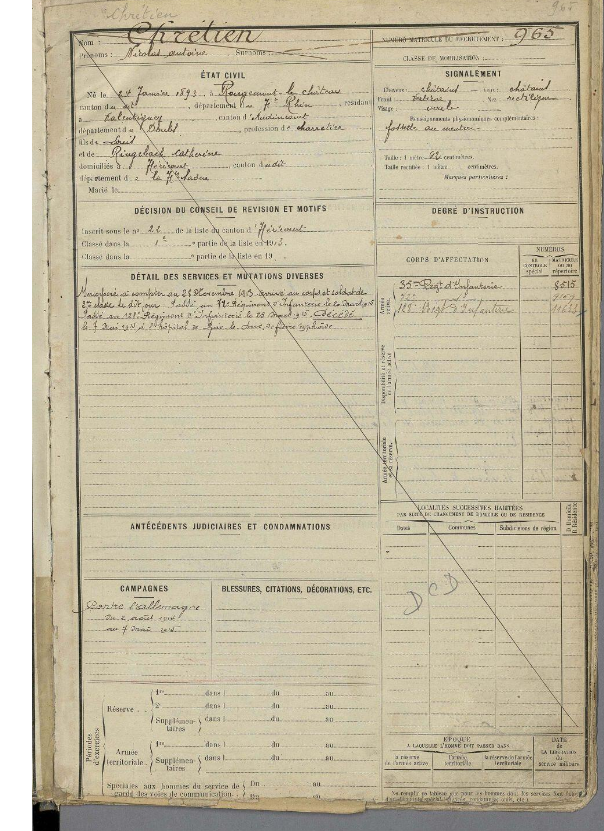 Chrétien
965
Nom : Chrétien
Prénoms : Nicolas Antoine Surnoms :
NUMÉRO MATRICULE DU RECRUTEMENT : 965
CLASSE DE MOBILISATION :
ÉTAT CIVIL
Né le 24 Janvier 1893, à Rougemont-le-château
canton dudit, département du Ht Rhin, résidant
à Valentigney, canton d'Audincourt
département du Doubs, profession de charretier
fils de Louis
et de Ringebach Catherine
domiciliés à Héricourt, canton dudit
département de la Hte Saône
Marié le
SIGNALEMENT
Cheveux : châtains yeux : châtains
Front : Nez : rectiligne
Visage : ovale
Renseignements physionomiques complémentaires :
fossette au menton
Taille : 1 mètre 62 centimètres.
Taille rectifiée : 1 mètre centimètres.
Marques particulières :
DÉCISION DU CONSEIL DE REVISION ET MOTIFS
Inscrit sous le n° 22 de la liste du canton d'Héricourt
Classé dans la 1e partie de la liste en 1913.
Classé dans la e partie de la liste en 19
DEGRÉ D'INSTRUCTION
DÉTAIL DES SERVICES ET MUTATIONS DIVERSES
Incorporé à compter du 28 Novembre 1913, arrivé au corps et soldat de
2e classe le dit jour. Passé au 72e Régiment d'Infanterie le 20 Mars 1915
Passé au 128e Régiment d'Infanterie le 25 Mars 1915. Décédé
le 7 Mai 1915 à l'hôpital de
fièvre typhoïde
CORPS D'AFFECTATION
NUMÉROS
DU CONTRÔLE spécial
MATRICULES OU DU répertoire
Armée active.
35e Régt d'Infanterie 8515
72e d°
128e Régt d'Infanterie
Disponibilité et réserve de l'armée active
Armée territoriale et sa réserve.
ANTÉCÉDENTS JUDICIAIRES ET CONDAMNATIONS
LOCALITÉS SUCCESSIVES HABITÉES
PAR SUITE DU CHANGEMENT DE DOMICILE OU DE RÉSIDENCE
Dates Communes Subdivisions de région
D. Domicile R. Résidence
DCD
CAMPAGNES
Contre l'Allemagne
du 2 août 1914
au 7 Mai 1915
BLESSURES, CITATIONS, DÉCORATIONS, ETC.
Périodes d'exercices
Réserve
1re dans l du au
2e dans l du au
Supplémentaires dans l du au
Armée territoriale
1re dans l du au
Supplémentaires dans l du au
Spéciales aux hommes du service de garde des voies de communication
Du au
Du au
ÉPOQUE
À LAQUELLE L'HOMME DOIT PASSER DANS
la réserve de l'armée active
l'armée territoriale
la réserve de l'armée territoriale
DATE de LA LIBÉRATION du service militaire